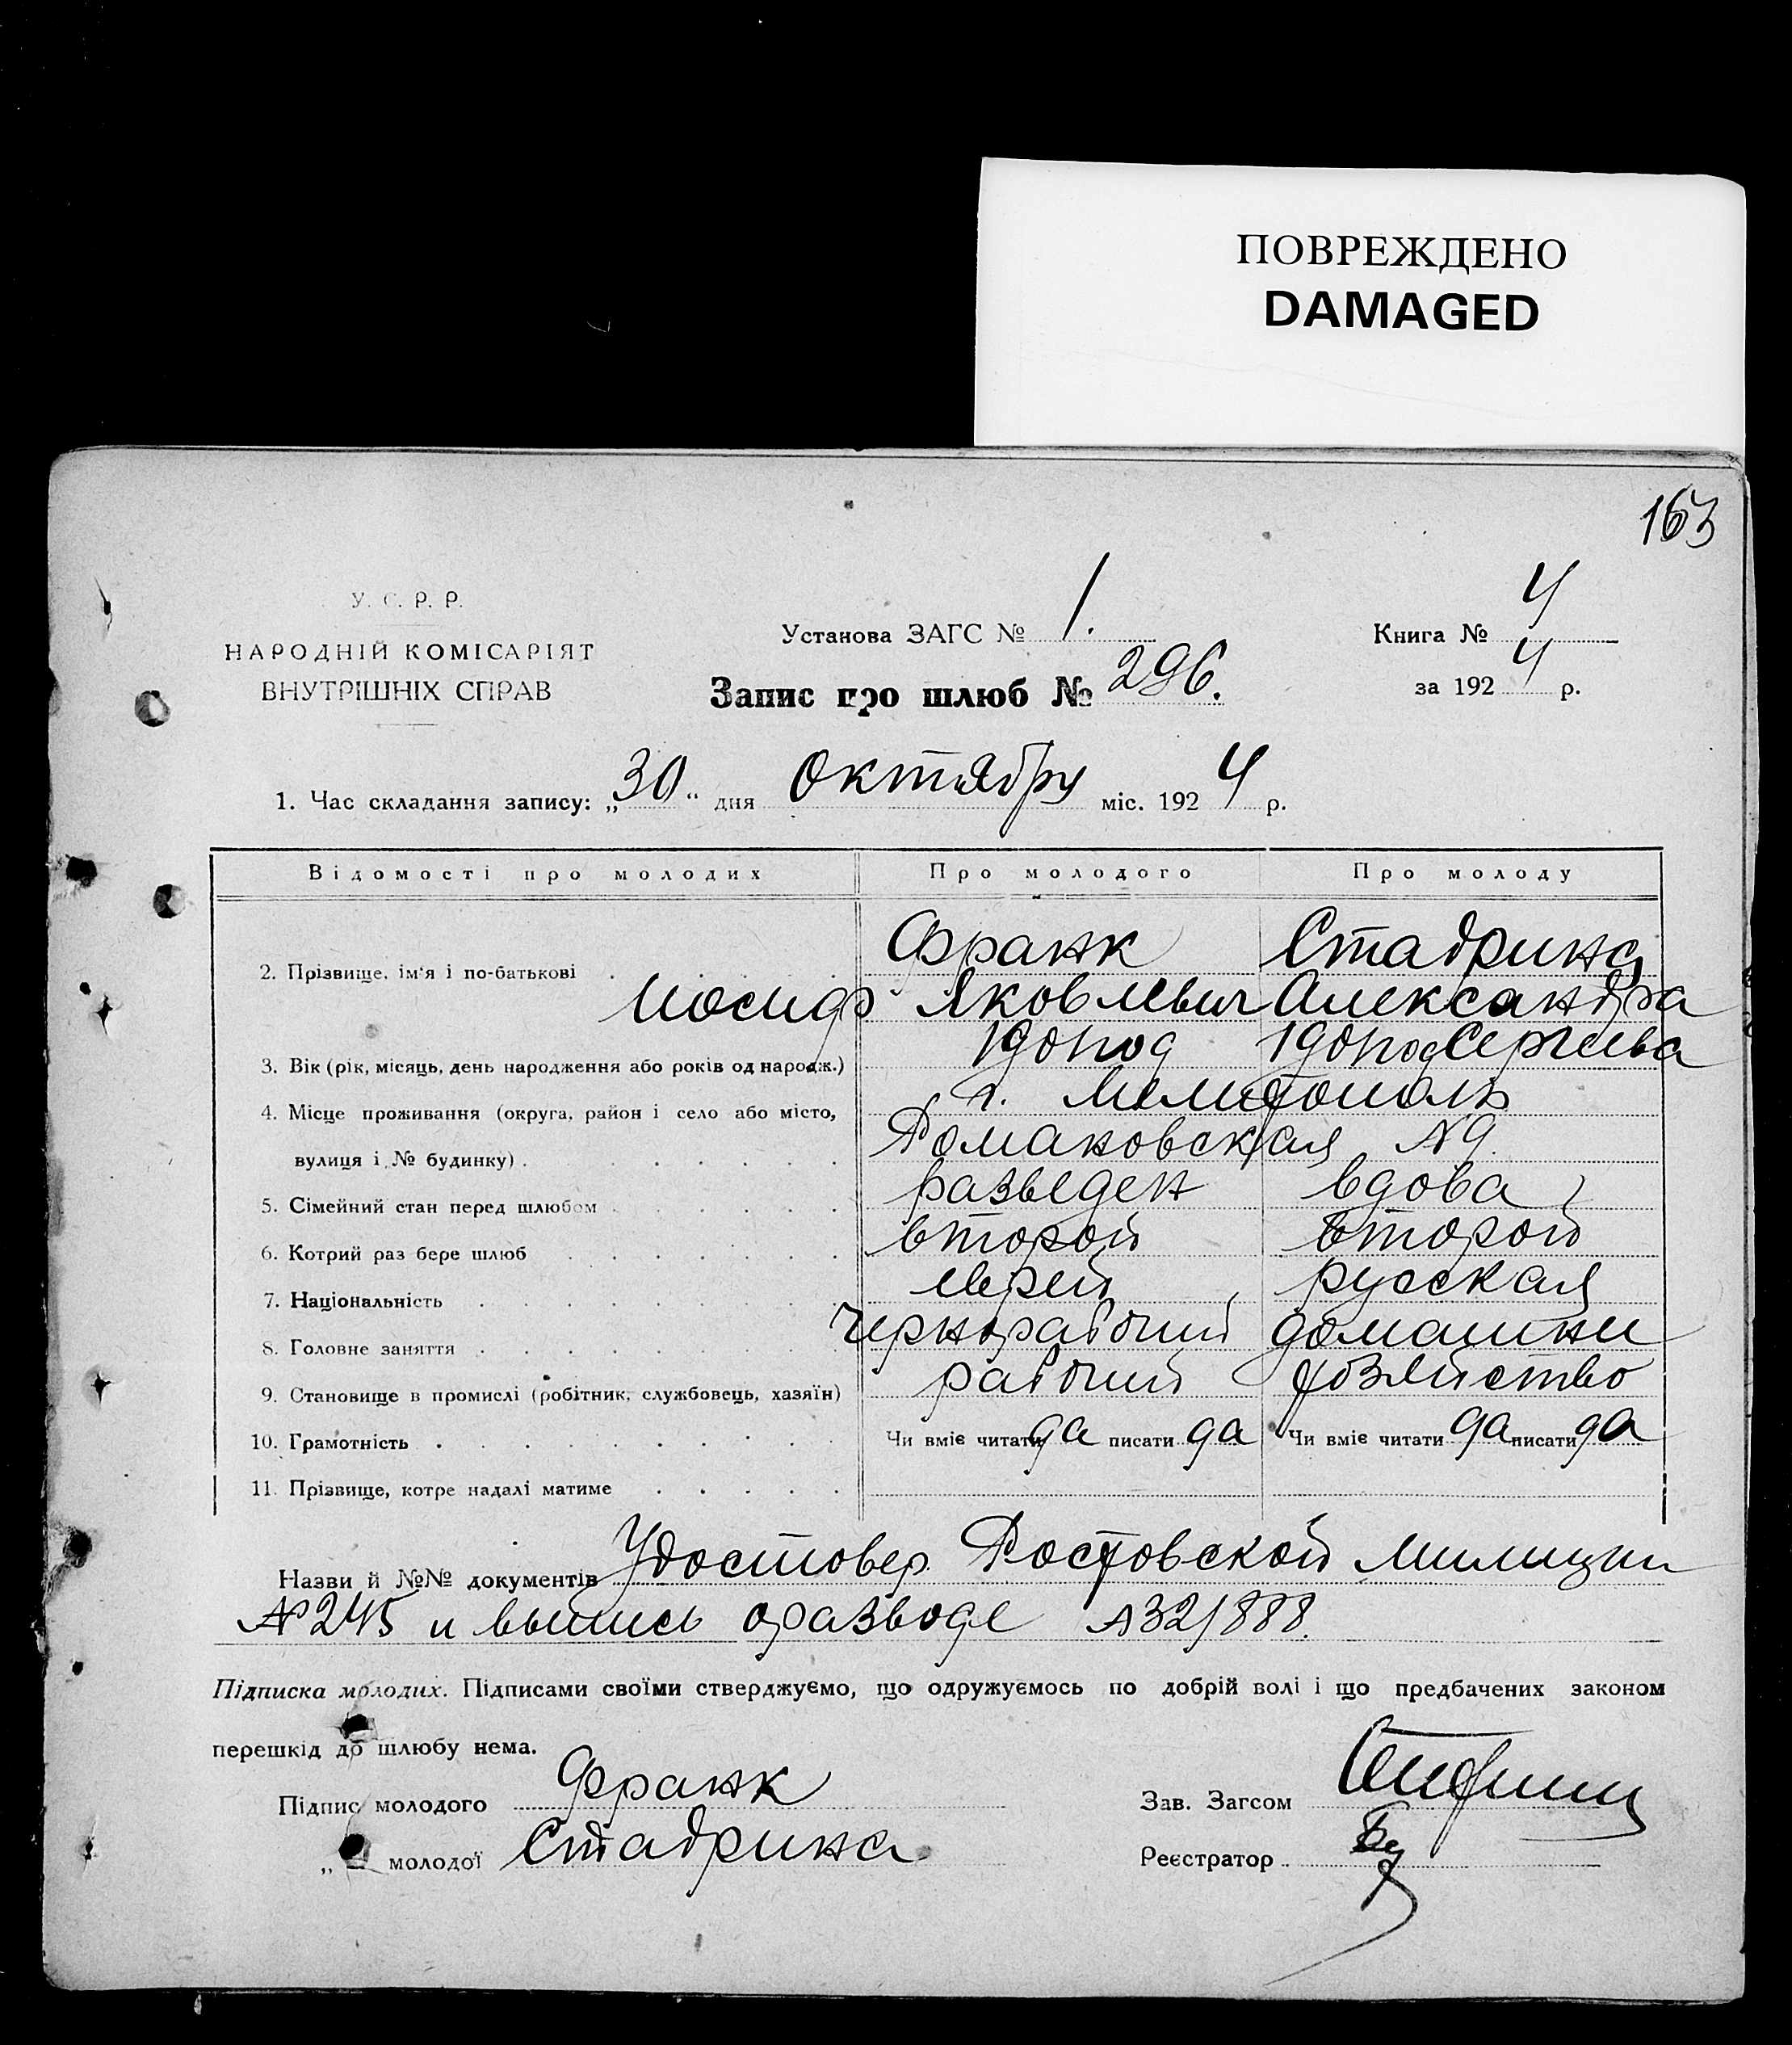 ПОВРЕЖДЕНО
DAMAGED
163
У. С. Р. Р.
НАРОДНІЙ КОМІСАРІЯТ
ВНУТРІШНІХ СПРАВ
Установа ЗАГС № 1.
Запис про шлюб № 296.
Книга № 4
за 1924 р.
1. Час складання запису: „30“ дня Октября міс. 1924 р.
Відомості про молодих Про молодого Про молоду
2. Прізвище, ім'я і по-батькові Франк Стадрина
Иосиф Яковлевич Александра
Сергеева
3. Вік (рік, місяць, день народження або років од народж.)
4. Місце проживання (округа, район і село або місто, г. Мелитополь
вулиця і № будинку) Романовская № 9.
5. Сімейний стан перед шлюбом разведен вдова
6. Котрий раз бере шлюб второй второй
7. Національність еврей русская
8. Головне заняття чернорабочий домашни
9. Становище в промислі (робітник, службовець, хазяїн) рабочий хозяйство
10. Грамотність Чи вміє читати да писати да Чи вміє читати да писати да
11. Прізвище, котре надалі матиме
Назви й №№ документів Удостовер. Ростовской милиции
№ 245 и выпись о разводе № 32/888.
Підписка молодих. Підписами своїми стверджуємо, що одружуємось по добрій волі і що предбачених законом
перешкід до шлюбу нема.
Підпис молодого Франк
„ молодої Стадрина
Зав. Загсом
Реєстратор